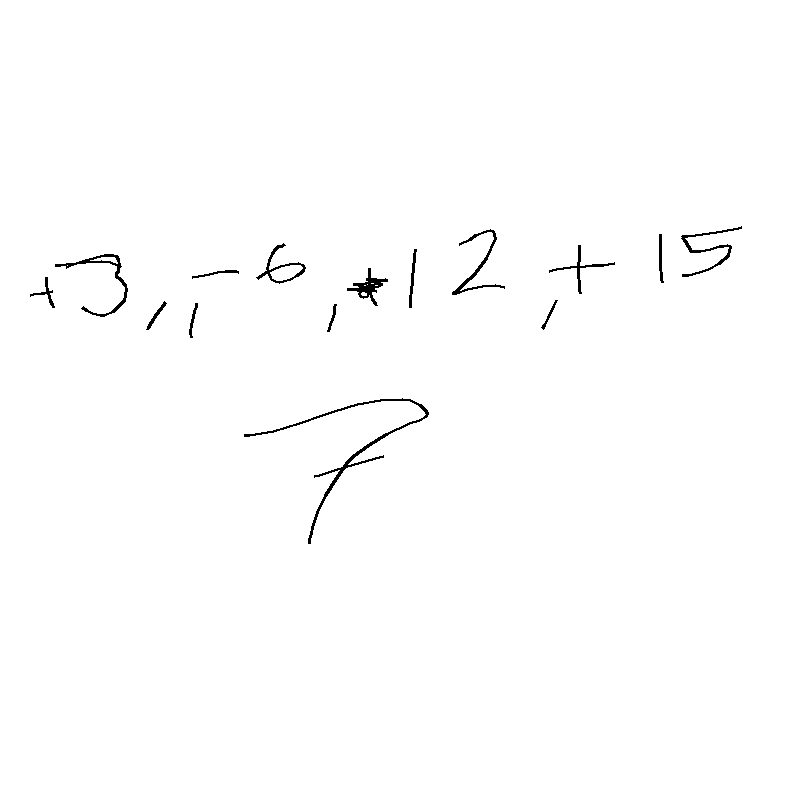 +3, -6, *12, +15
7